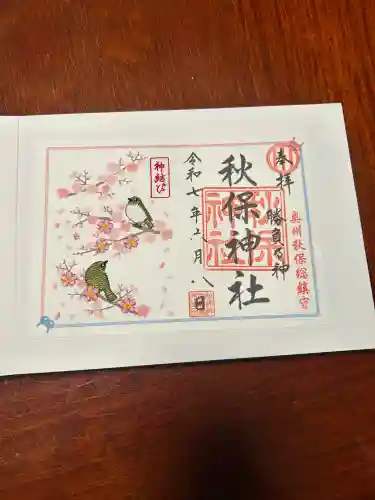 奉拝
勝負の神
奥州秋保総鎮守
秋保神社
秋保
神社
令和七年六月八日
神結び